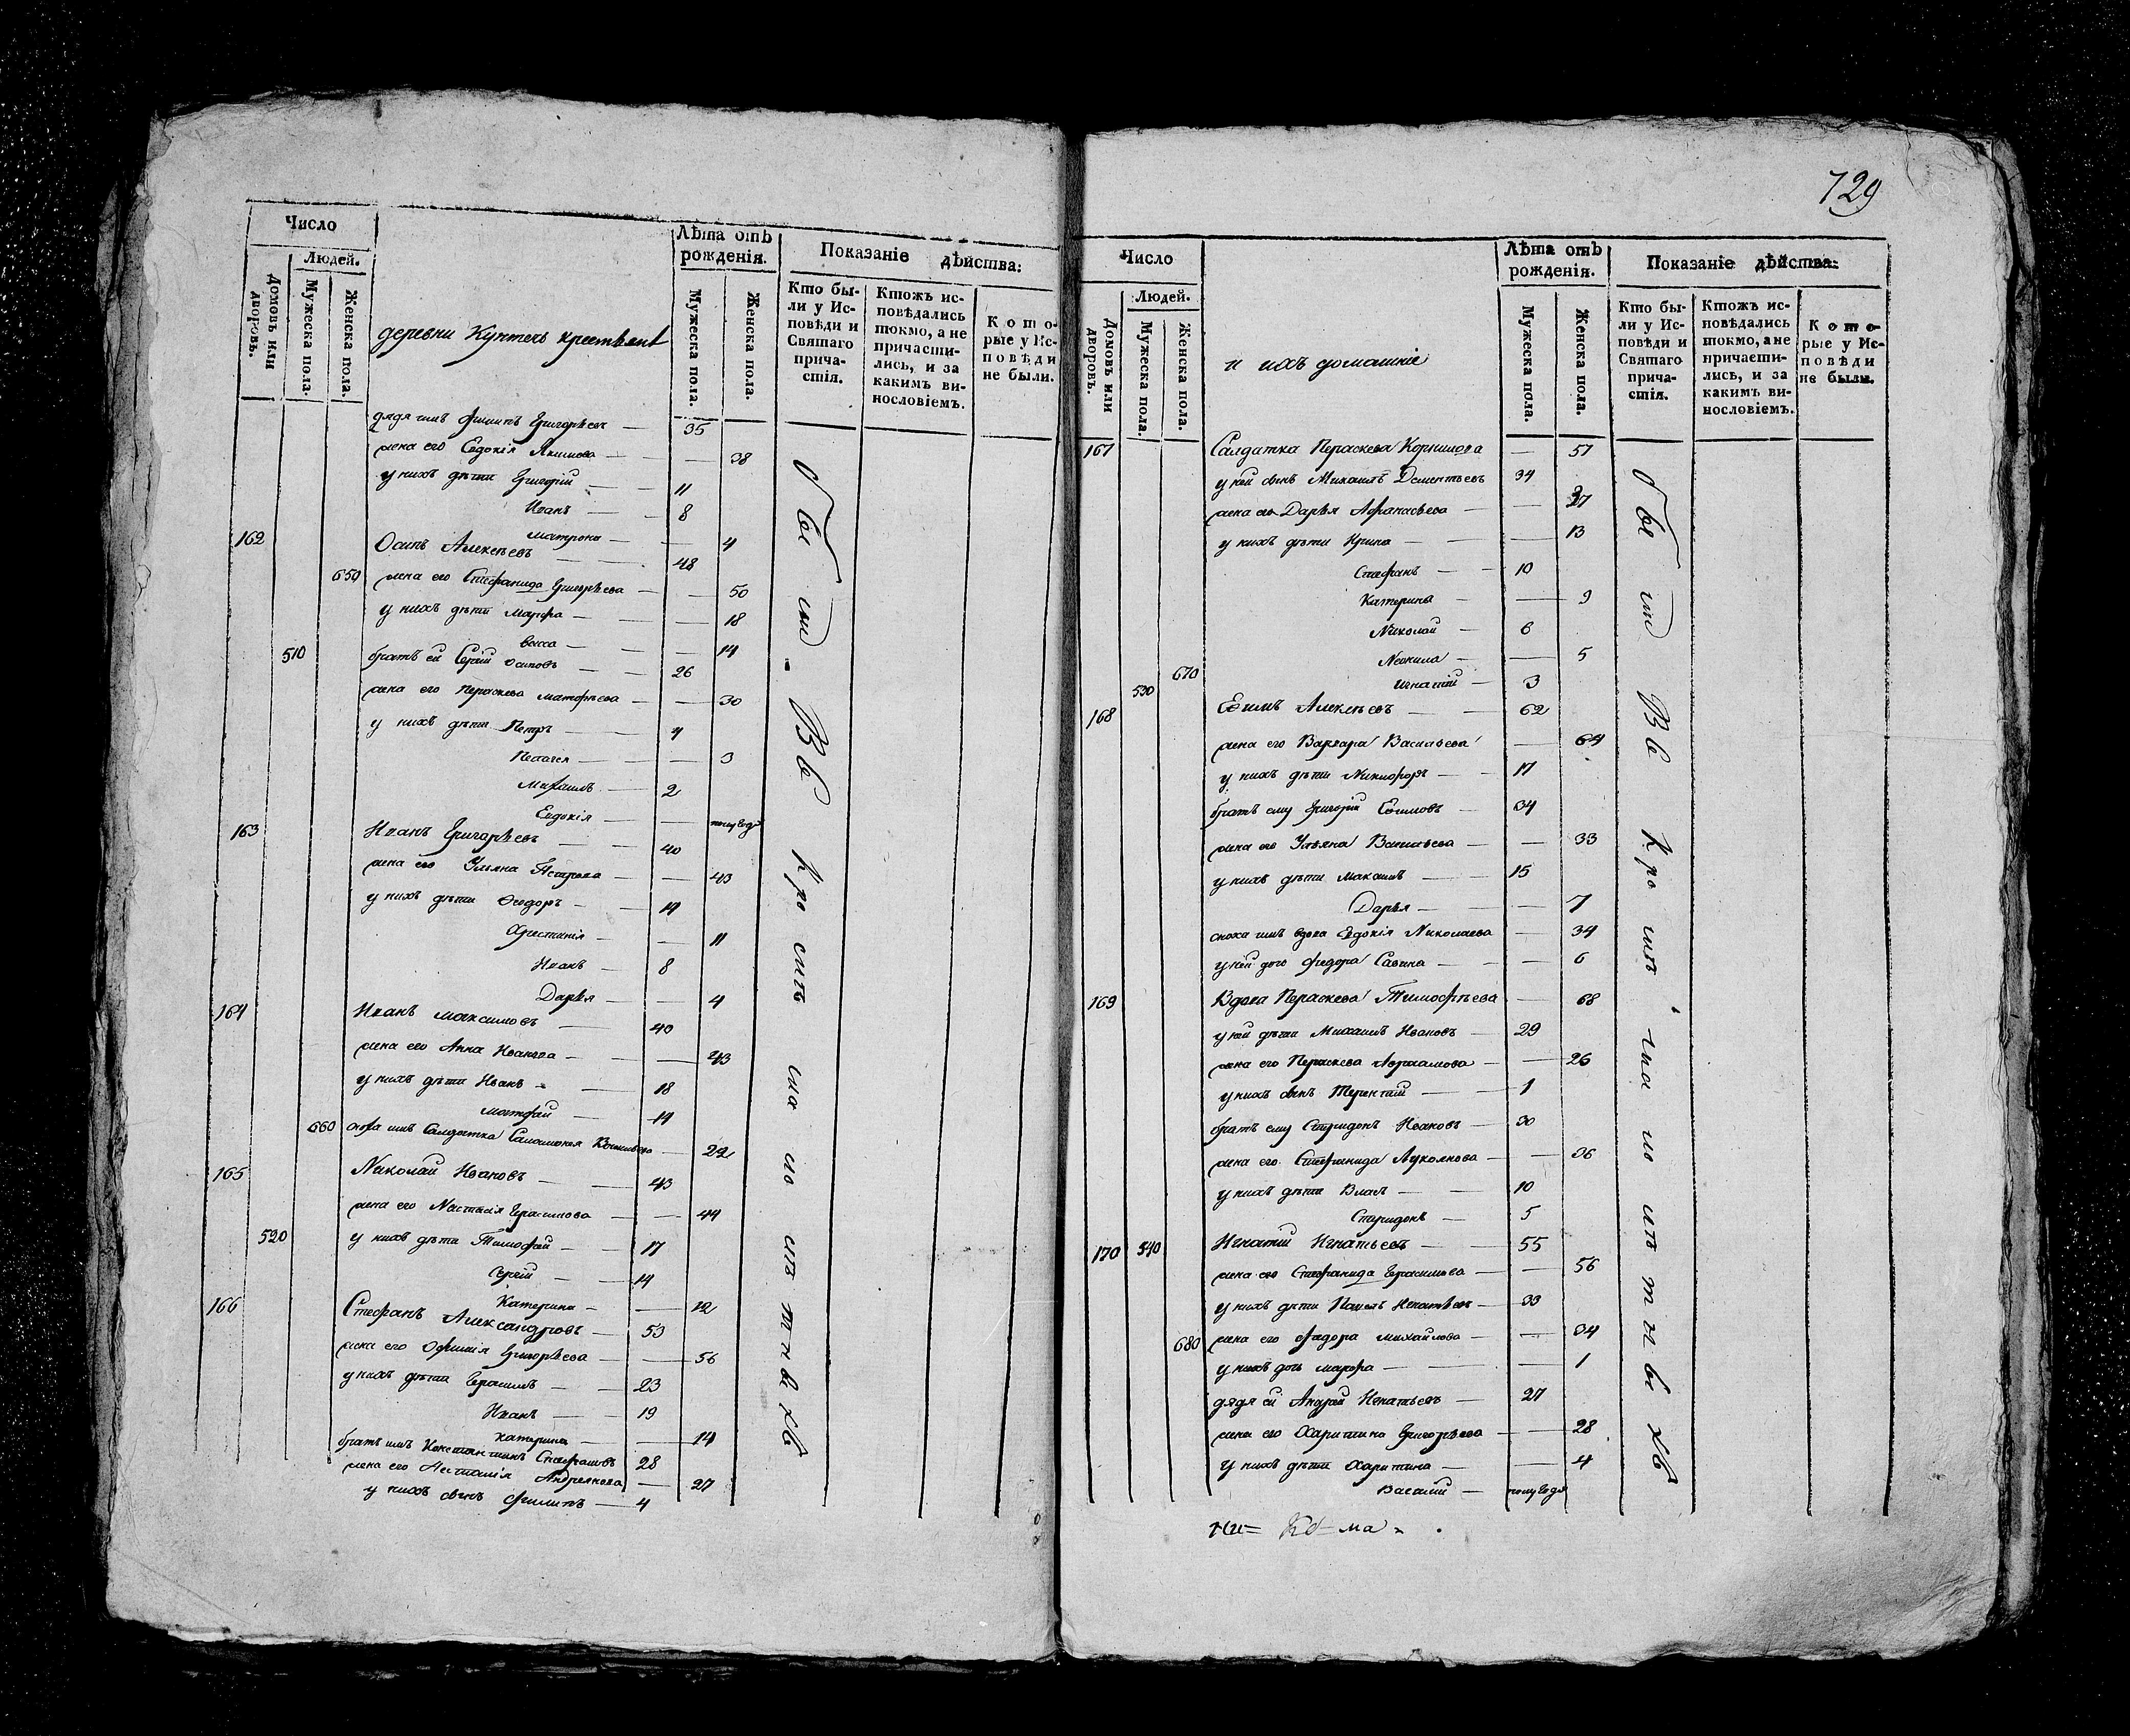 729
Число
Людей.
Домовъ или дворовъ.
Мужеска пола.
Женска пола.
деревни Кунтечь крестьянъ
Лѣта отъ рожденія.
Мужеска пола.
Женска пола.
Показаніе дѣйства:
Кто были у Исповѣди и Святаго причастія.
Ктожъ исповѣдались токмо, а не причастились, и за какимъ винословіемъ.
Которые у Исповѣди не были.
дядя имъ Филипъ Григорьевъ — 35
жена его Евдокія Якимова — 38
у нихъ дѣти Григорій — 11
Иванъ — 8
Матрона — 4
162 Осипъ Алексѣевъ — 48
650 жена его Стефанида Григорьева — 50
у нихъ дѣти Марфа — 18
Васса — 14
510 братъ ей Сергій Осиповъ — 26
жена его Пераскева Матфѣева — 30
у нихъ дѣти Петръ — 4
Пелагея — 3
Михаилъ — 2
Евдокія — полугода
163 Иванъ Григорьевъ — 40
жена его Ульяна Петрова — 43
у нихъ дѣти Феодоръ — 14
Христинія — 11
Иванъ — 8
Дарья — 4
164 Иванъ Максимовъ — 40
жена его Анна Иванова — 43
у нихъ дѣти Иванъ — 18
Матфей — 14
660 имъ Салдатка Саломонея — 22
165 Николай Ивановъ — 43
жена его Настасія Герасимова — 44
520 у нихъ дѣти Тимофей — 17
Сергій — 14
Катерина — 12
166 Стефанъ Александровъ — 53
жена его Офимія Григорьева — 56
у нихъ дѣти Герасимъ — 23
Иванъ — 19
Катерина — 14
братъ имъ Константинъ Стефановъ 28
жена его Настасія Андреянова — 27
у нихъ сынъ Филипъ — 4
Число
Людей.
Домовъ или дворовъ.
Мужеска пола.
Женска пола.
и ихъ домашніе
Лѣта отъ рожденія.
Мужеска пола.
Женска пола.
Показаніе дѣйства:
Кто были у Исповѣди и Святаго причастія.
Ктожъ исповѣдались токмо, а не причастились, и за какимъ винословіемъ.
Которые у Исповѣди не были.
167 Салдатка Пераскева Корнилова — 57
у ней сынъ Михаилъ Дементьевъ 34
жена его Дарья Афанасьева — 37
у нихъ дѣти Ирина — 13
Стефанъ — 10
Катерина — 9
Николай — 6
Неонила — 5
530 670 Игнатій — 3
168 Ефимъ Алексѣевъ — 62
жена его Варвара Васильева — 64
у нихъ дѣти Никифоръ — 17
братъ ему Григорій Ефимовъ — 34
жена его Ульяна Васильева — 33
у нихъ дѣти Максимъ — 15
Дарья — 7
сноха имъ вдова Евдокія Николаева — 34
у ней дочь Федора Савина — 6
169 Вдова Пераскева Тимофѣева — 68
у ней дѣти Михаилъ Ивановъ — 29
жена его Пераскева Авраамова — 26
у нихъ сынъ Терентій — 1
братъ ему Спиридонъ Ивановъ — 30
жена его Стефанида Лукоянова — 36
у нихъ дѣти Власъ — 10
Спиридонъ — 5
170 540 Игнатій Игнатьевъ — 55
жена его Стефанида Герасимова — 56
у нихъ дѣти Павелъ Игнатьевъ — 33
680 жена его Федора Михайлова — 34
у нихъ дочь Марфа — 1
дядя ей Андрей Игнатьевъ — 27
жена его Харитина Григорьева — 28
у нихъ дѣти Харитина — 4
Василій — полугода